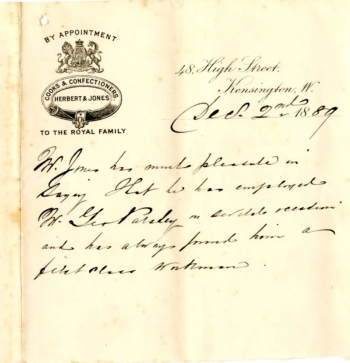 BY APPOINTMENT
COOKS & CONFECTIONERS,
HERBERT & JONES
TO THE ROYAL FAMILY
48, High Street,
Kensington, W.
Dec. 2nd 1889
W. Jones has much pleasure in
saying that he has employed
W. Geo Parsley on several occasions
and has always found him a
first class workman.